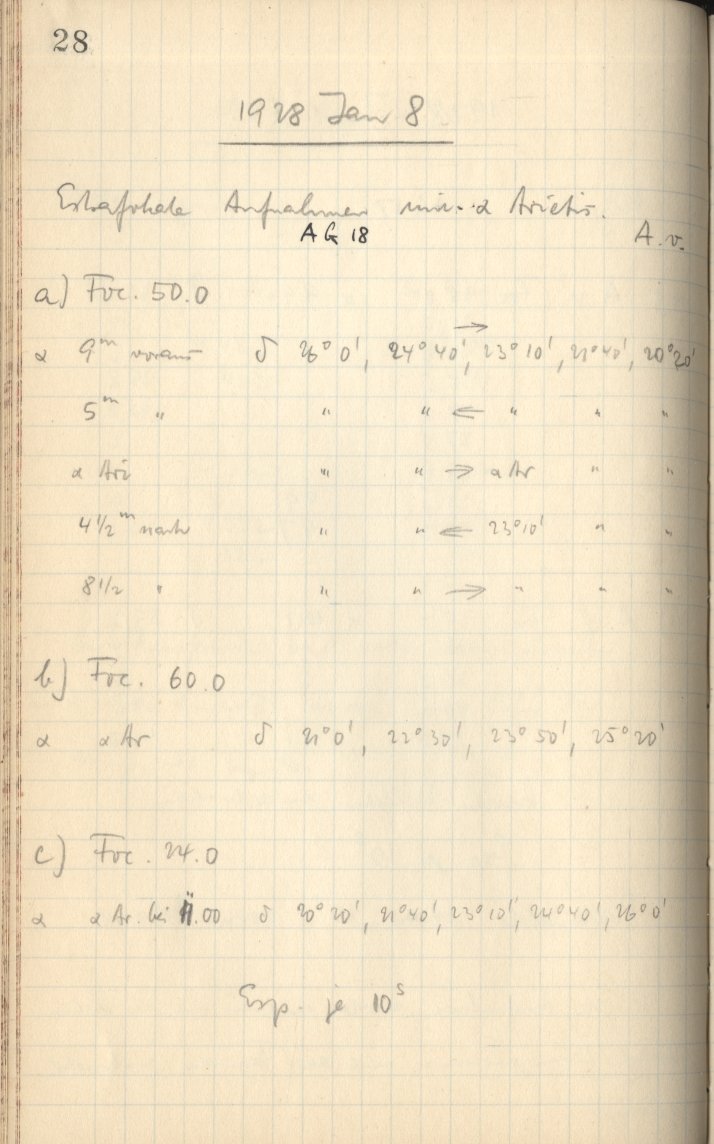 28
1928 Jan 8
Extrafokale Aufnahmen mit α Arietis.
AG 18 A.v.
a) Foc. 50.0
→
α 9ᵐ voraus δ 26° 0', 24° 40', 23° 10', 21° 40', 20° 20'
5ᵐ " " " ← " " "
α Ari " " → α Ar " "
4 1/2ᵐ nach " " ← 23° 10' " "
8 1/2 " " " → " " "
b) Foc. 60.0
α α Ar δ 21° 0', 22° 30', 23° 50', 25° 20'
c) Foc. 24.0
α α Ar. bei .00 δ 20° 20', 21° 40', 23° 10', 24° 40', 26° 0'
Exp. je 10ˢ